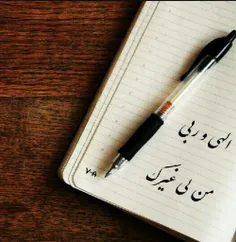 الهی و ربی
من لی غیرک